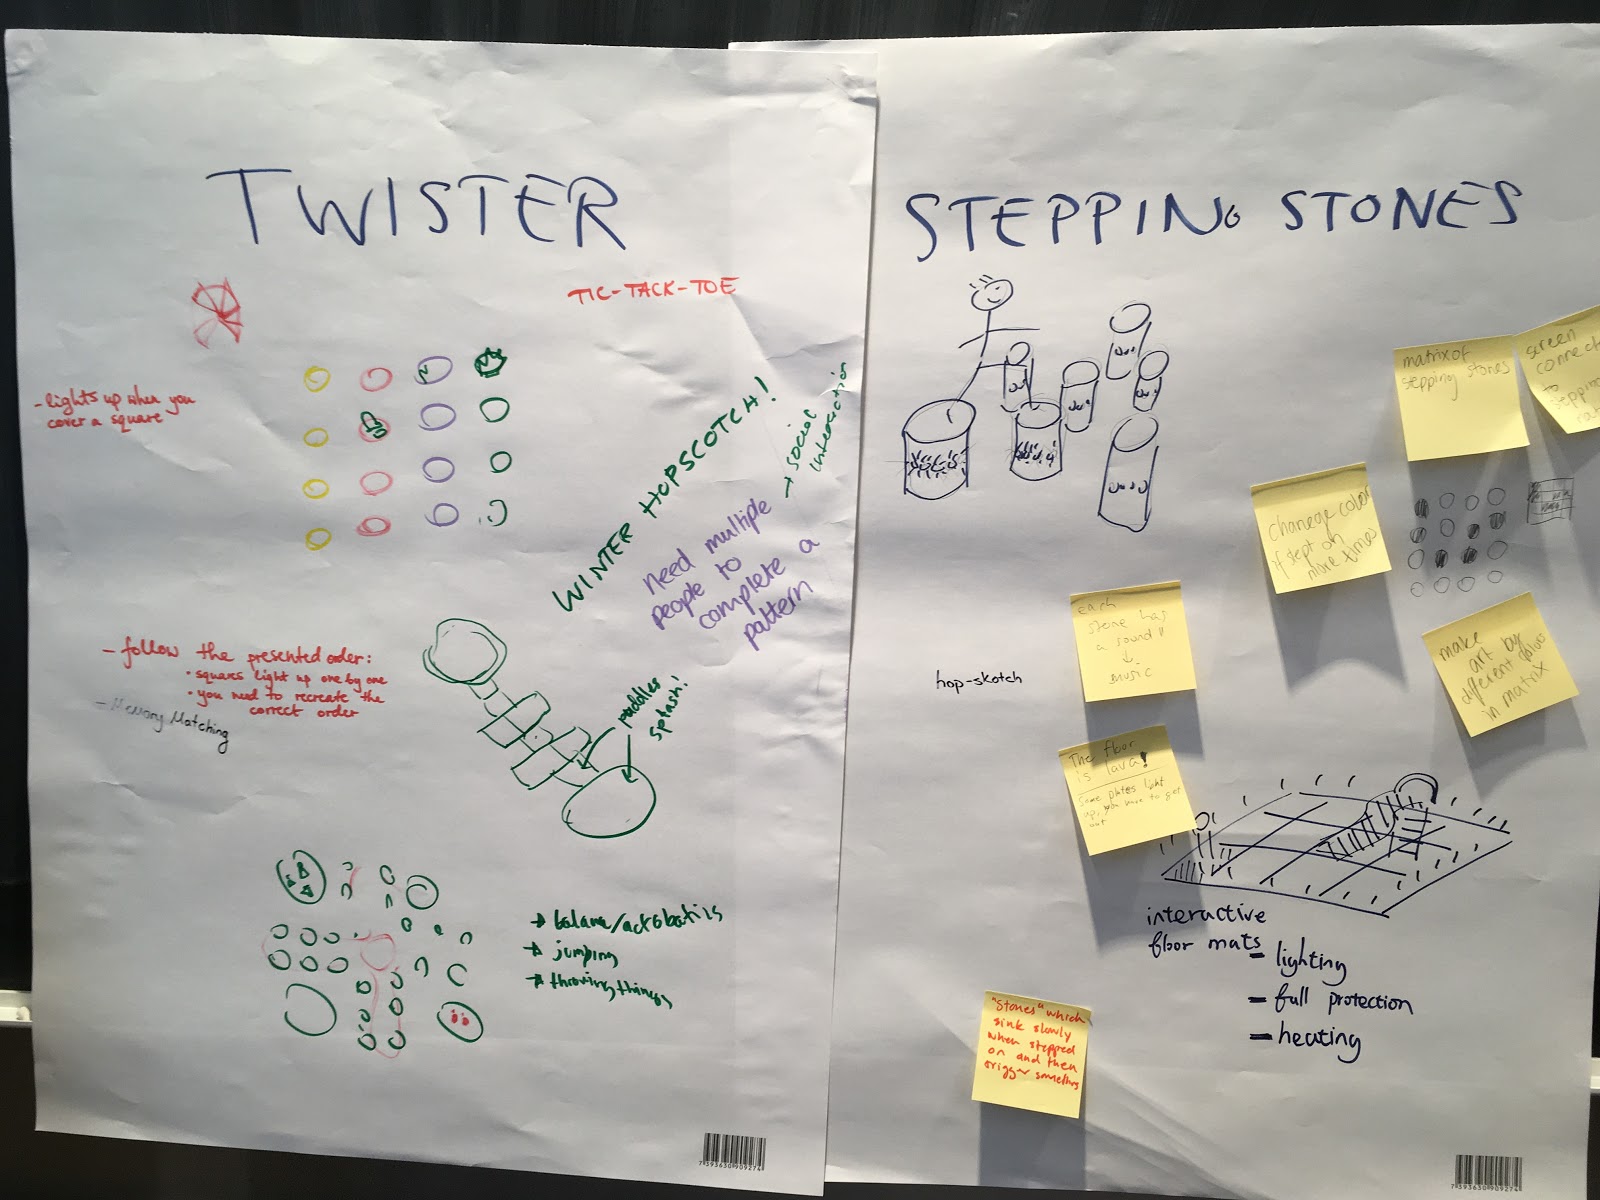 TWISTER
TIC-TACK-TOE
- lights up when you
cover a square
WINTER HOPSCOTCH!
Need multiple
people to
complete a
pattern
→ social
interaction
- follow the presented order:
• squares light up one by one
• you need to recreate the
correct order
- Memory Matching
puddles
splash!
→ balance/acrobatics
→ jumping
→ throwing things
7393630909274
STEPPING STONES
matrix of
stepping stones
screen
connect
to
chanege color
if stept on
more times
each
stone has
a sound!!
↓
music
make
art by
different colors
in matrix
hop-skotch
The floor
is lava!
Some plates light
up, you have to get
out
interactive
floor mats
- lighting
- full protection
- heating
"Stones" which
sink slowly
when stepped
on and then
trigger something
7393630909274